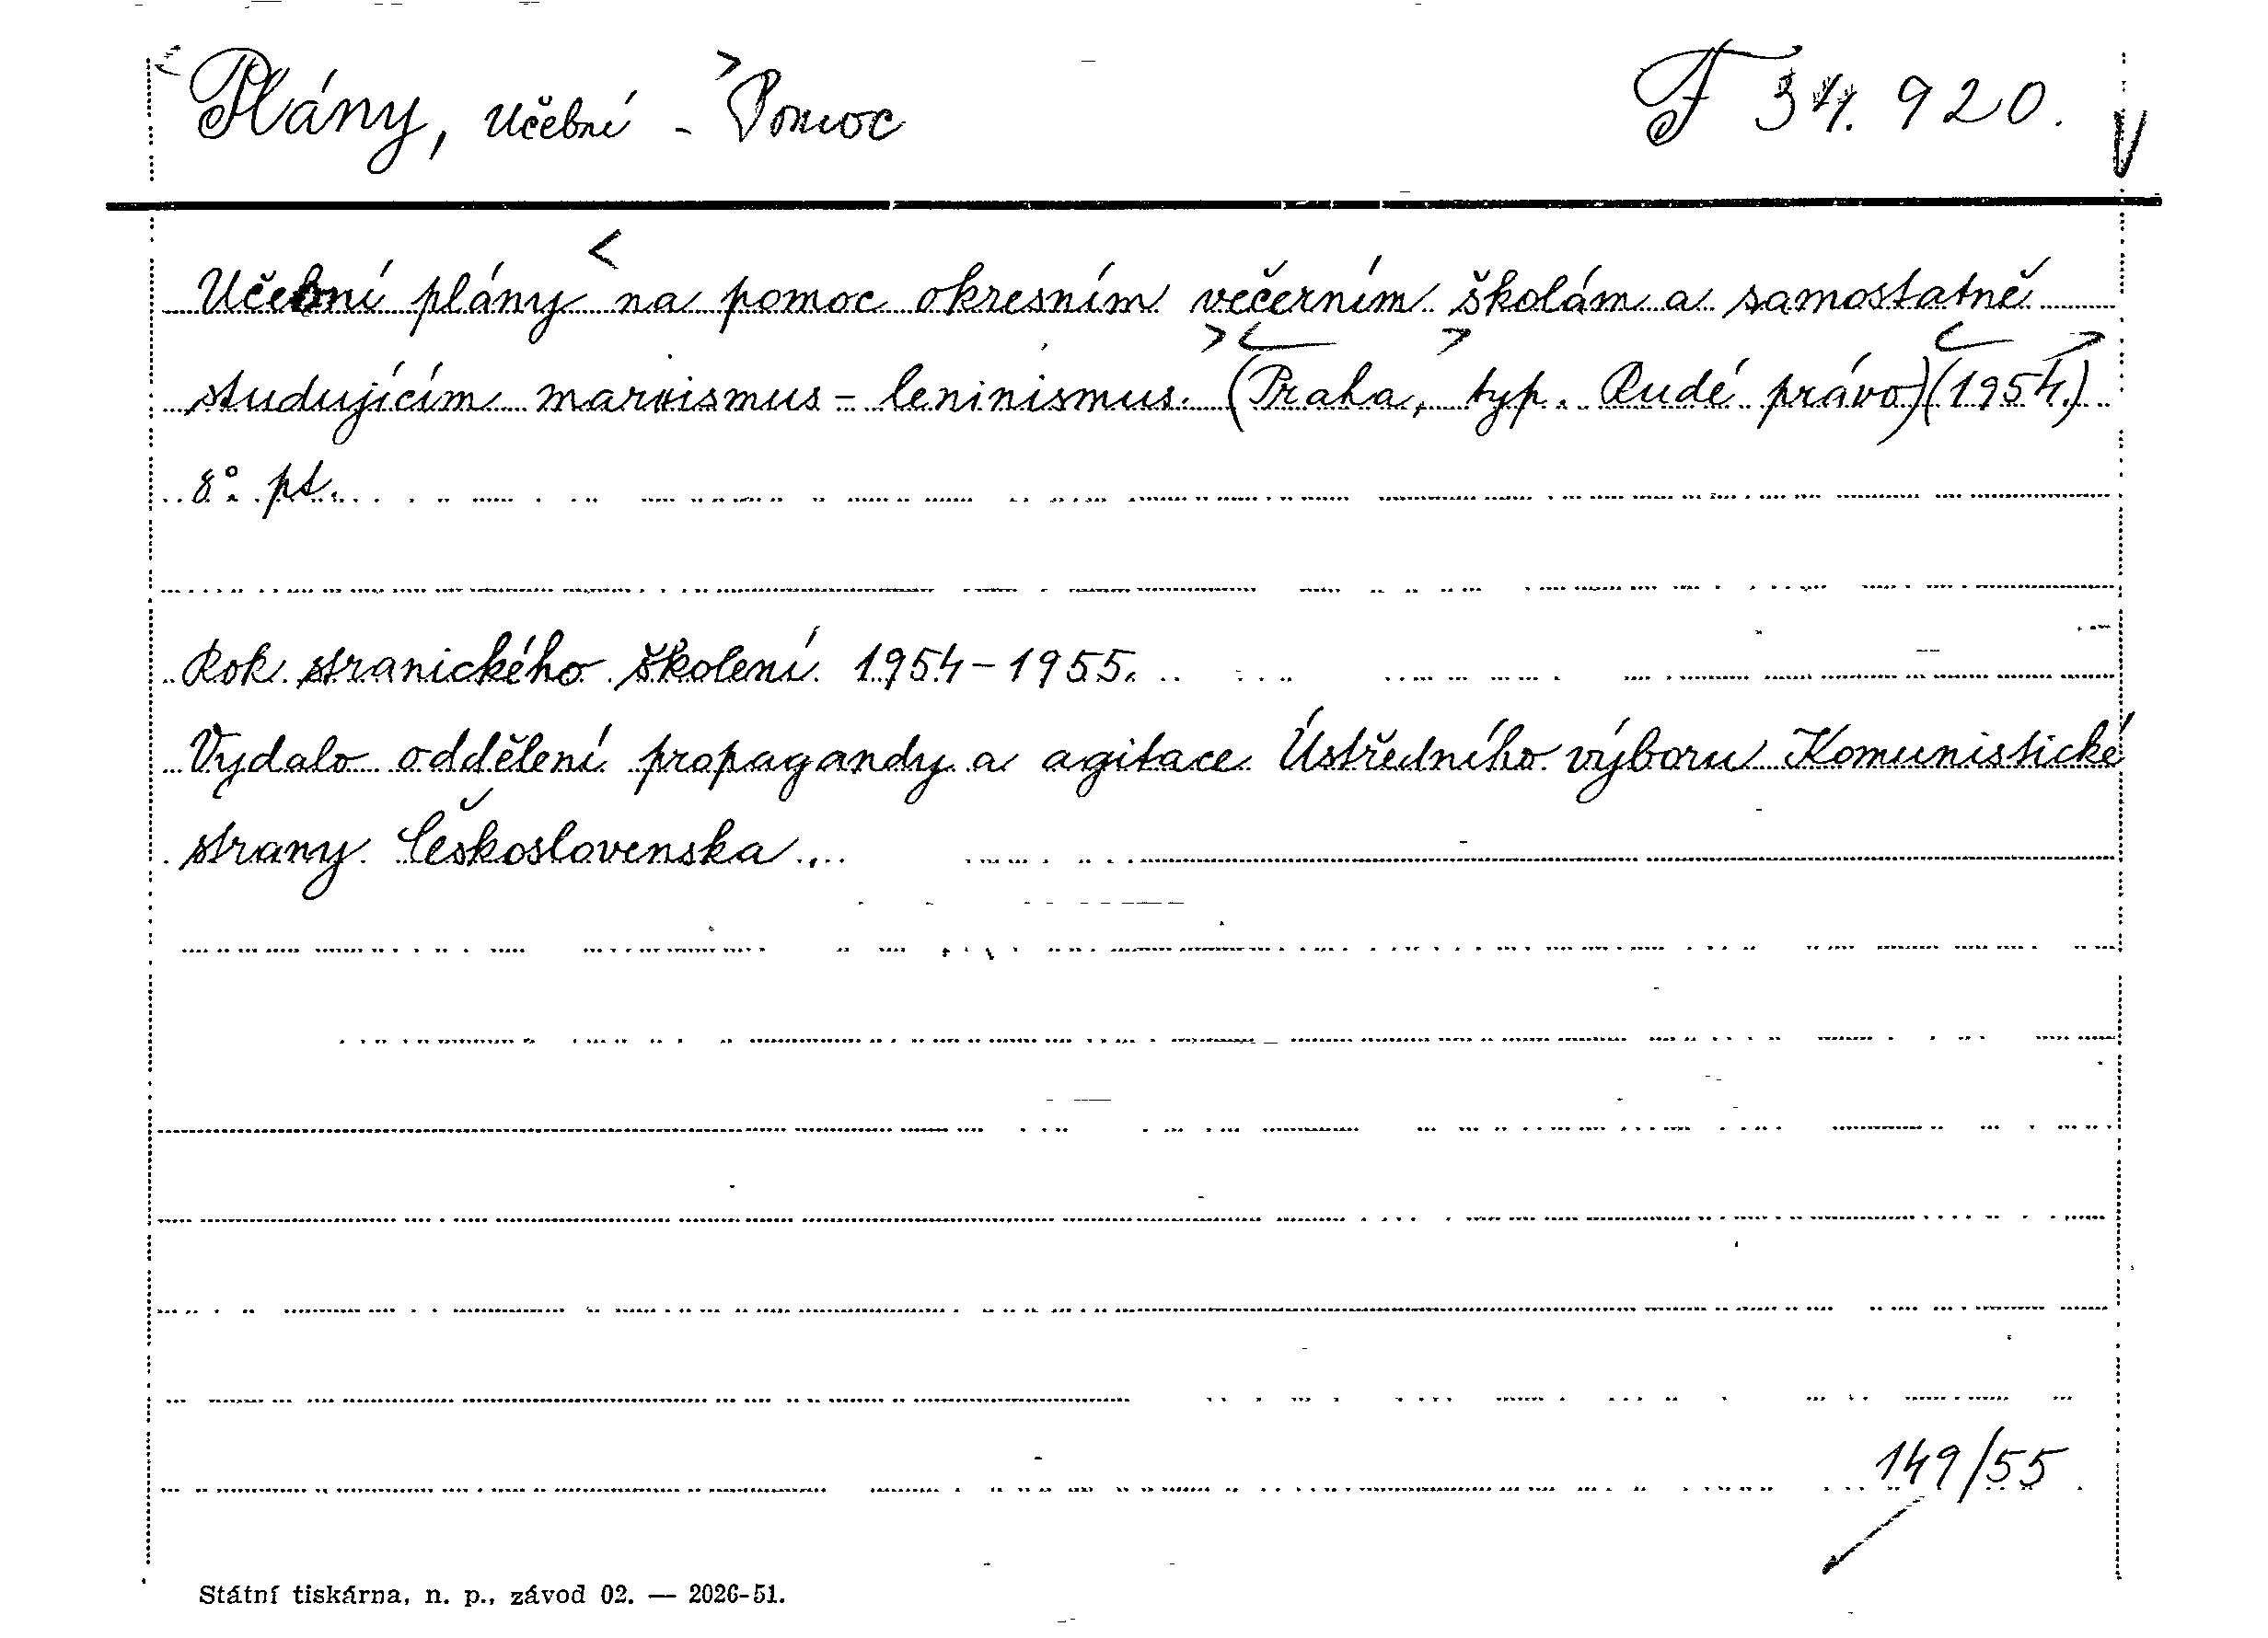 Plány, učební - Pomoc F 34.920.
Učební plány na pomoc okresním večerním školám a samostatně
studujícím marxismus-leninismus. (Praha, typ. Rudé právo)(1954.)
8°. pt.
Rok stranického školení 1954-1955.
Vydalo oddělení propagandy a agitace Ústředního výboru Komunistické
strany Československa.
149/55
Státní tiskárna, n. p., závod 02. — 2026-51.